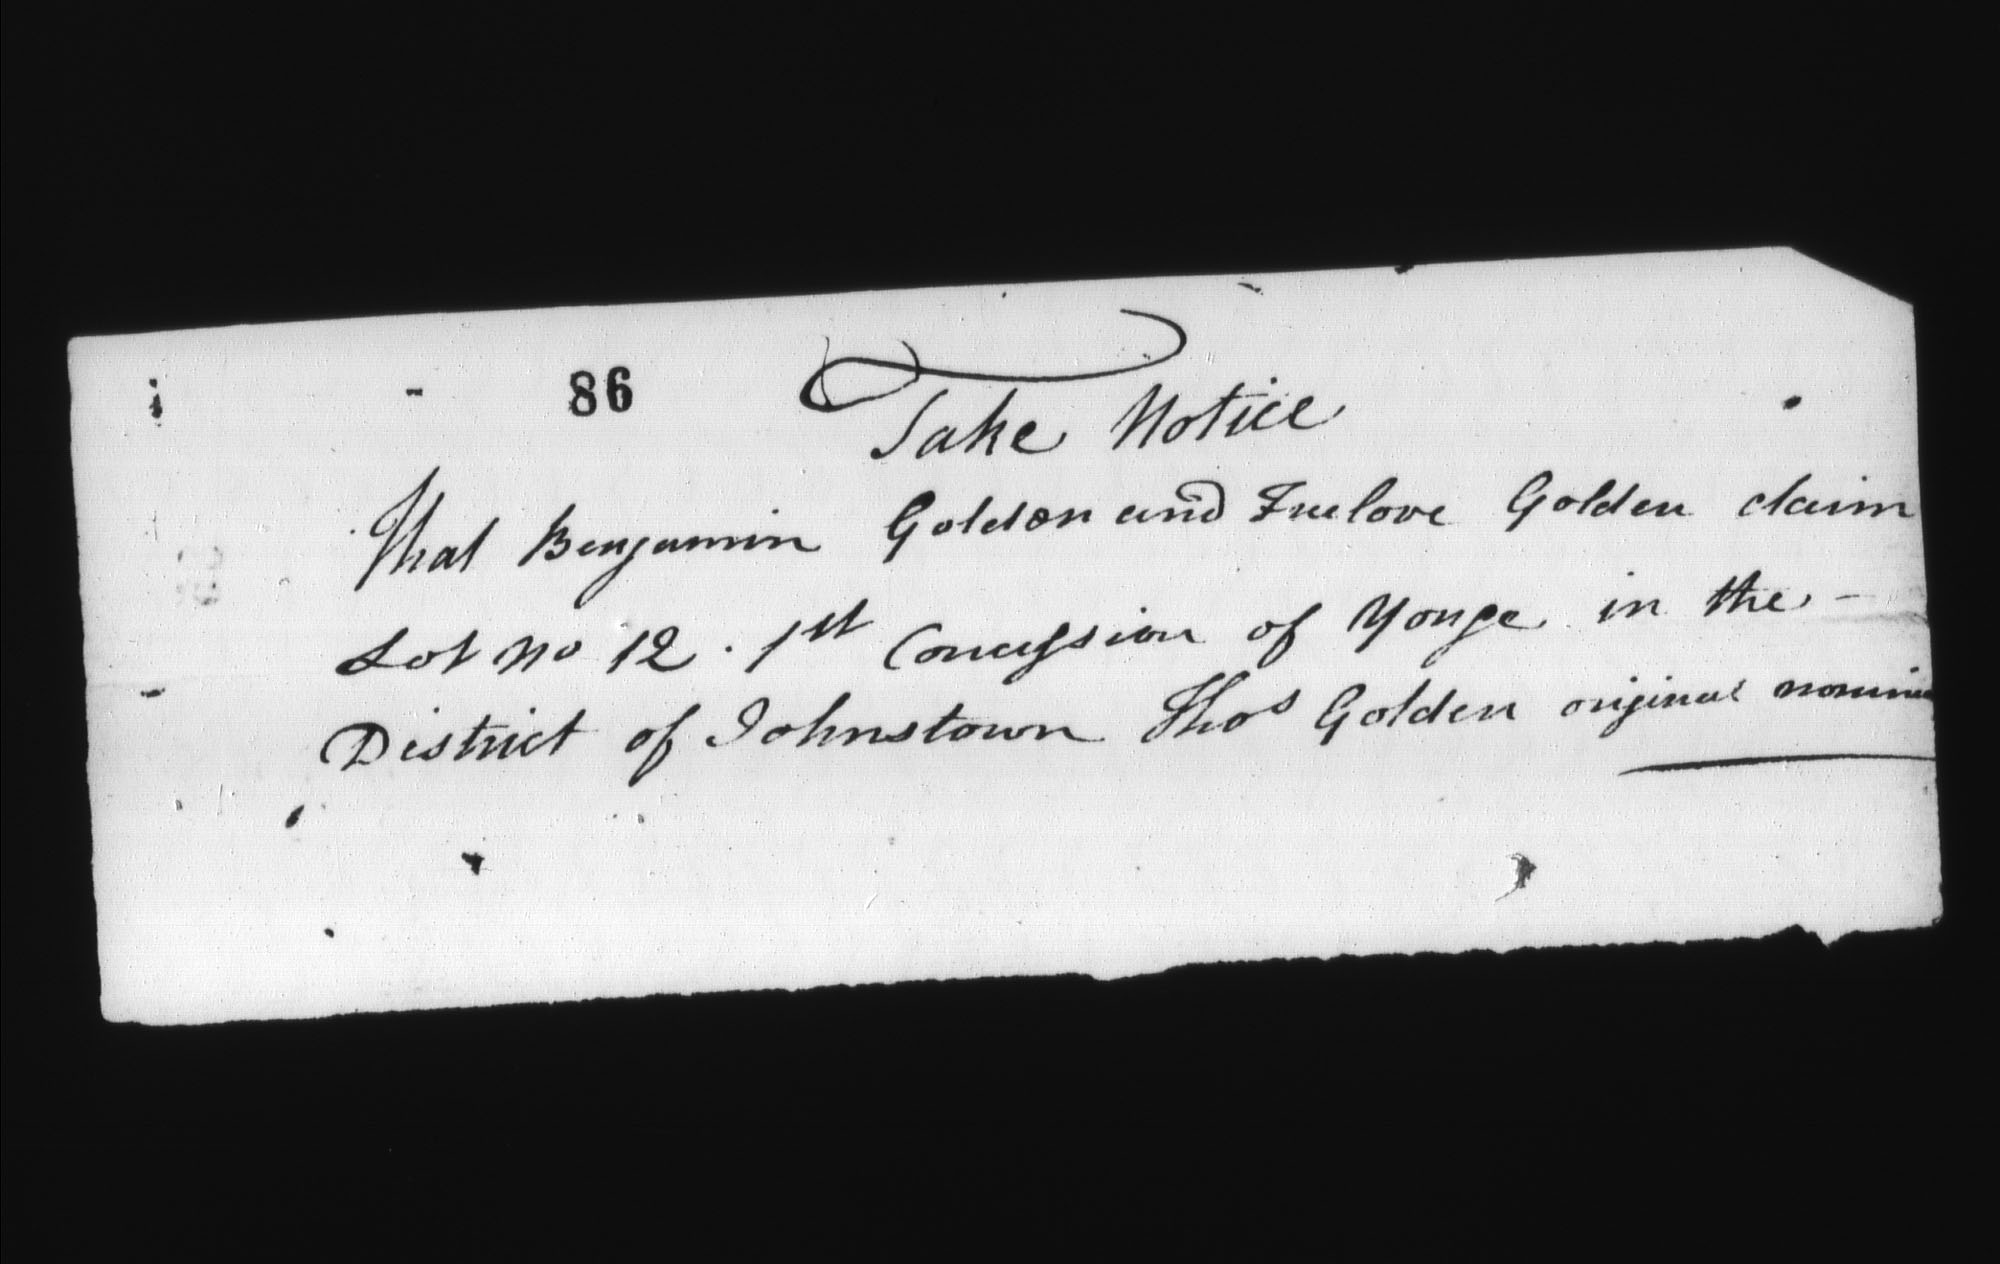 86
Take Notice
That Benjamin Golden and Freelove Golden claim
Lot No 12 . 1st Concession of Yonge in the -
District of Johnstown Thos Golden original